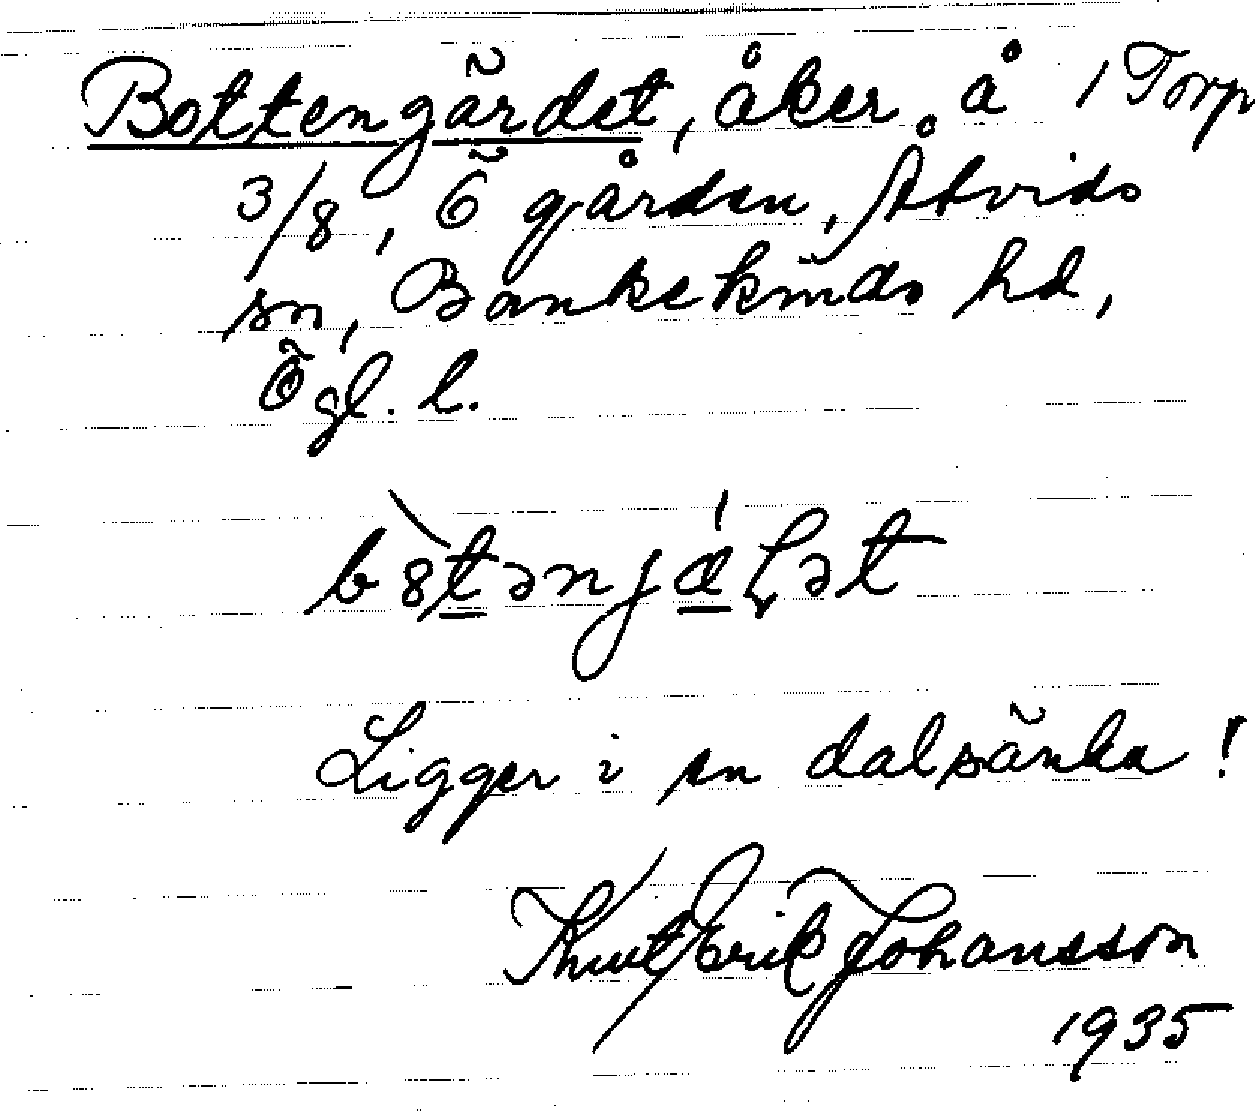 Bottengärdet, åker å 1 Torp
3/8, Ö gården, Åtvids
sn, Bankekinds hd,
Ögl. l.
b8̀tənjǽɽət
Ligger i en dalsänka!
Knut Erik Johansson
1935